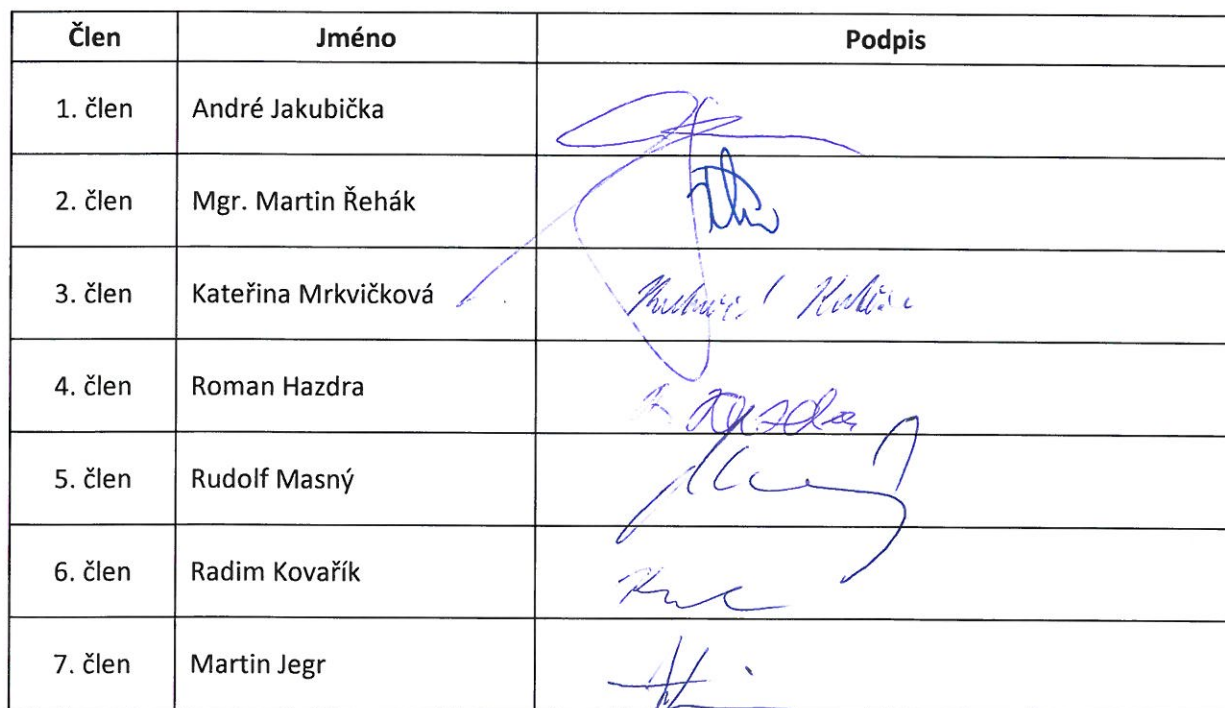 Člen Jméno Podpis
1. člen André Jakubička
2. člen Mgr. Martin Řehák
3. člen Kateřina Mrkvičková
4. člen Roman Hazdra
5. člen Rudolf Masný
6. člen Radim Kovařík
7. člen Martin Jegr